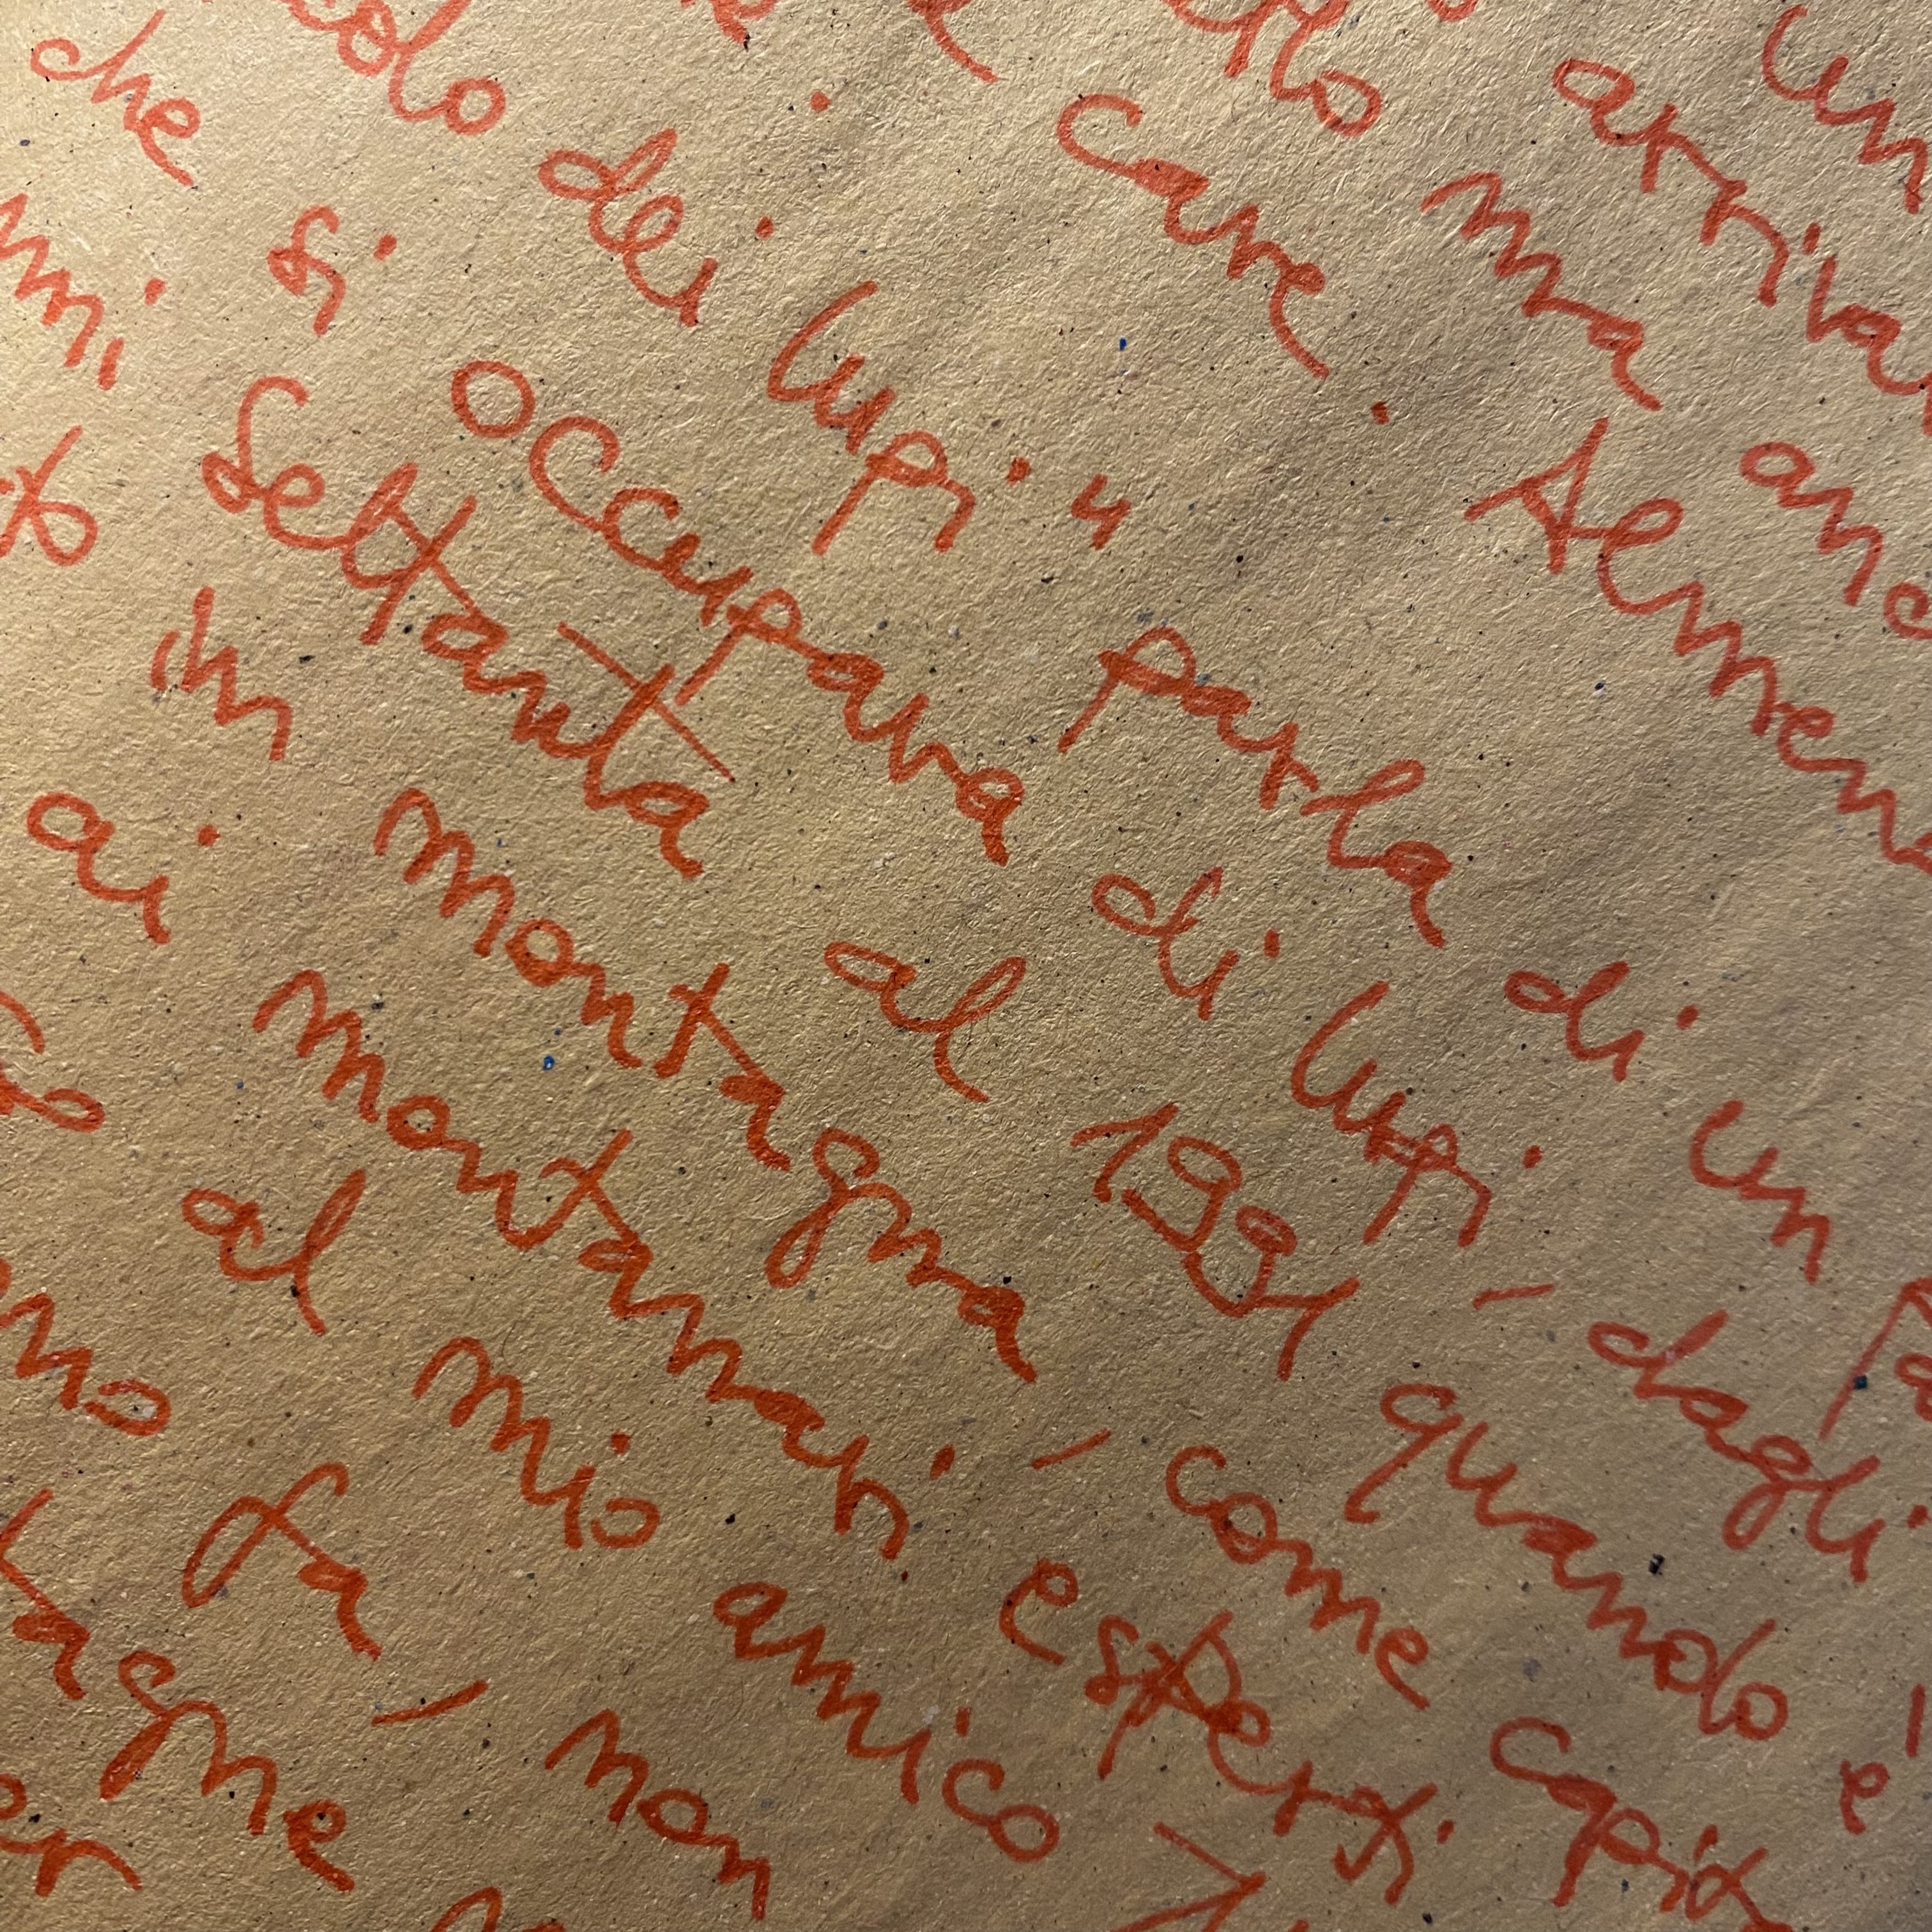 un
arriva
ma
cane. Almeno
dei lupi" parla di un
che si occupava di lupi - dagli
Settanta al 1991 quando è
in montagna - come
ai montanari esperti
al mio amico
fa - non